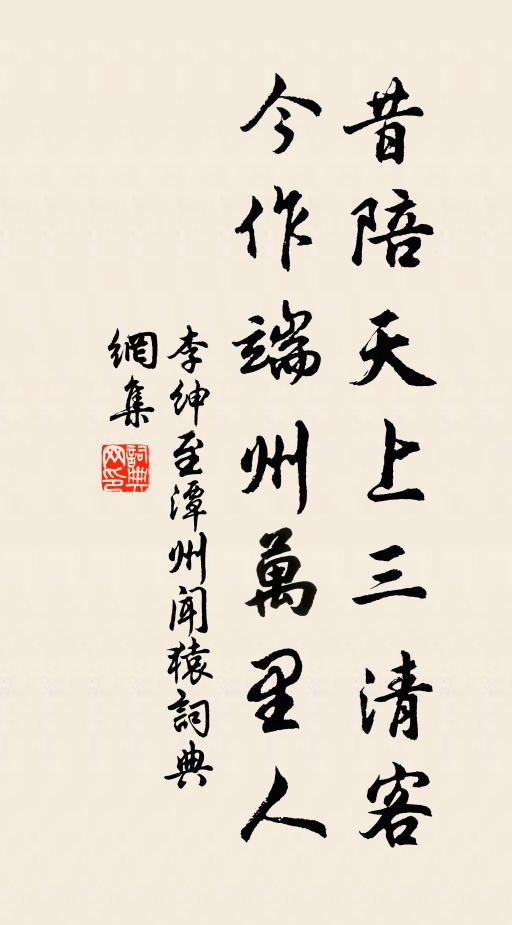 昔陪天上三清客
今作端州萬里人
李紳至潭州聞猿詞典
網集
詞典網印